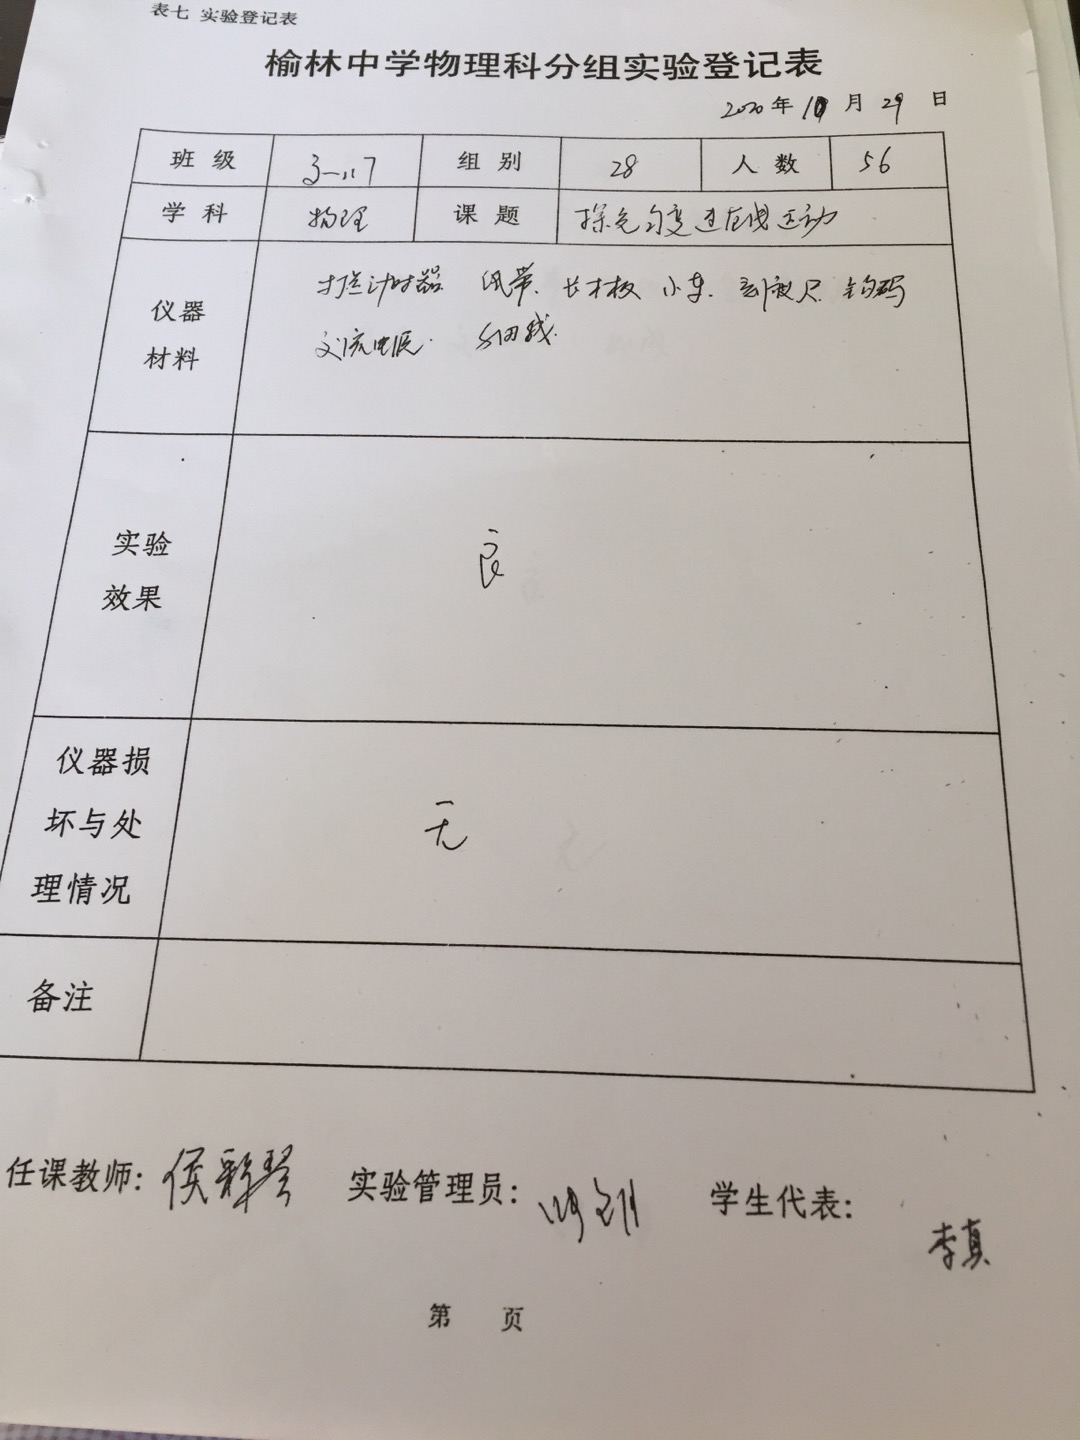 表七 实验登记表
榆林中学物理科分组实验登记表
2020年10月29日
班级 组别 28 人数 56
学科 物理 课题 探究匀变速直线运动
仪器材料
打点计时器 纸带、长木板 小车、刻度尺 钩码
交流电源、细线.
实验效果
良
仪器损坏与处理情况
无
备注
任课教师：侯彩琴 实验管理员： 学生代表：
李真
第 页